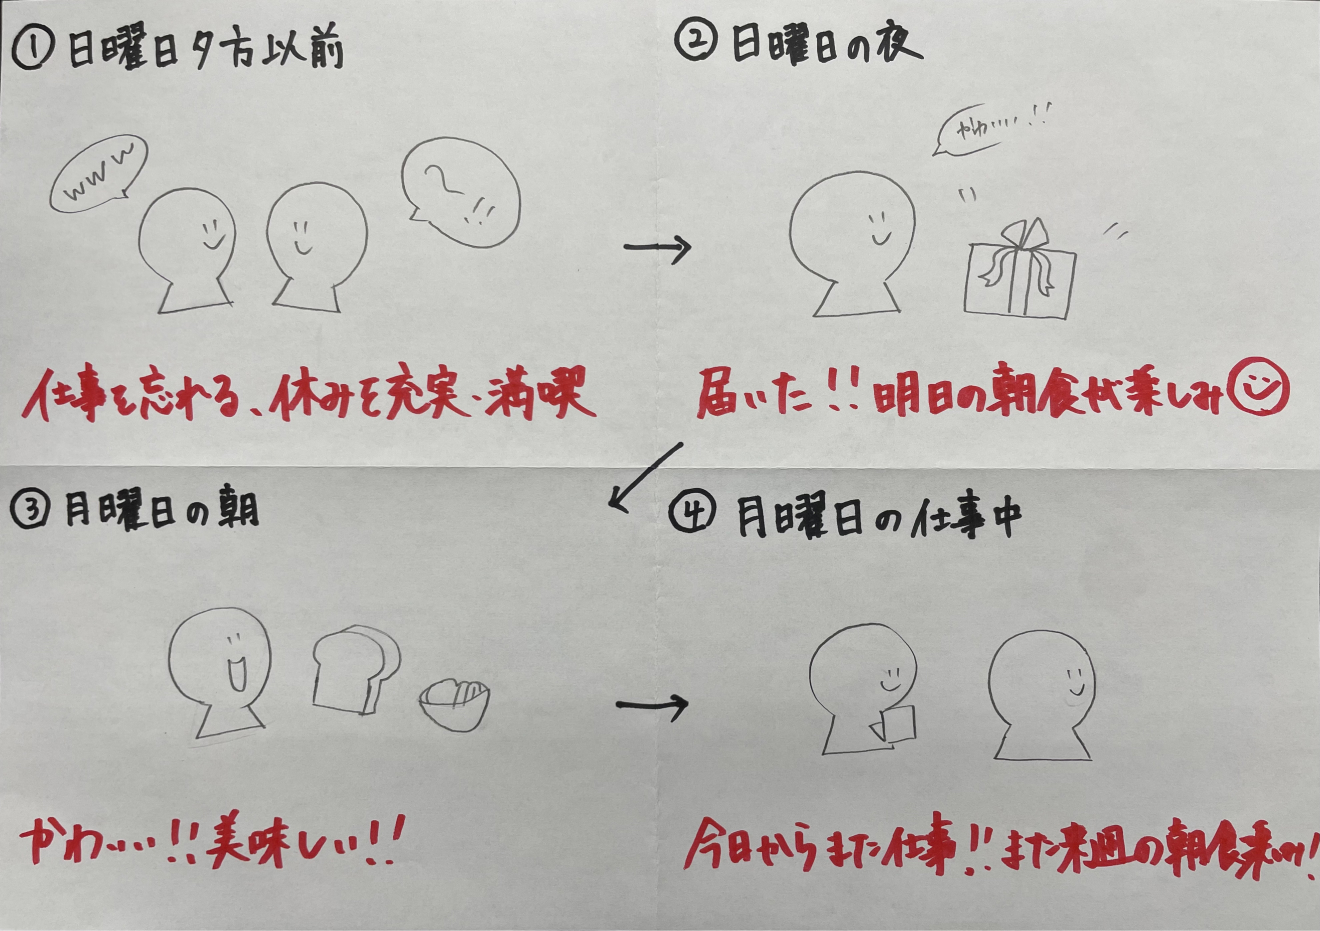 ① 日曜日夕方以前
www
?!!
仕事を忘れる、休みを充実・満喫
② 日曜日の夜
やわ....!!
届いた!!明日の朝食が楽しみ
③ 月曜日の朝
かわ...!!美味しい!!
④ 月曜日の仕事中
今日からまた仕事!!また来週の朝食楽しみ!